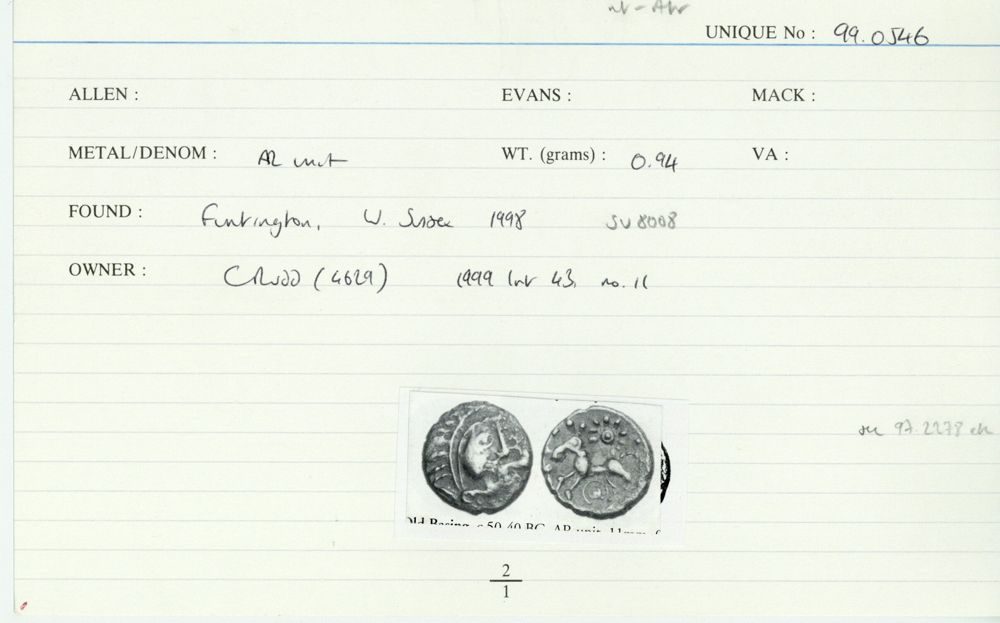 UNIQUE No : 99.0546
ALLEN : EVANS : MACK :
METAL/DENOM : AR unit WT. (grams) : 0.94 VA :
FOUND : Funtington, W. Sussex 1998 SU8008
OWNER : C Rudd (4629) 1999 list 43, no. 11
see 97.2278 etc
Old Basing, c.50-40 BC. AR unit. 11mm.
2
1